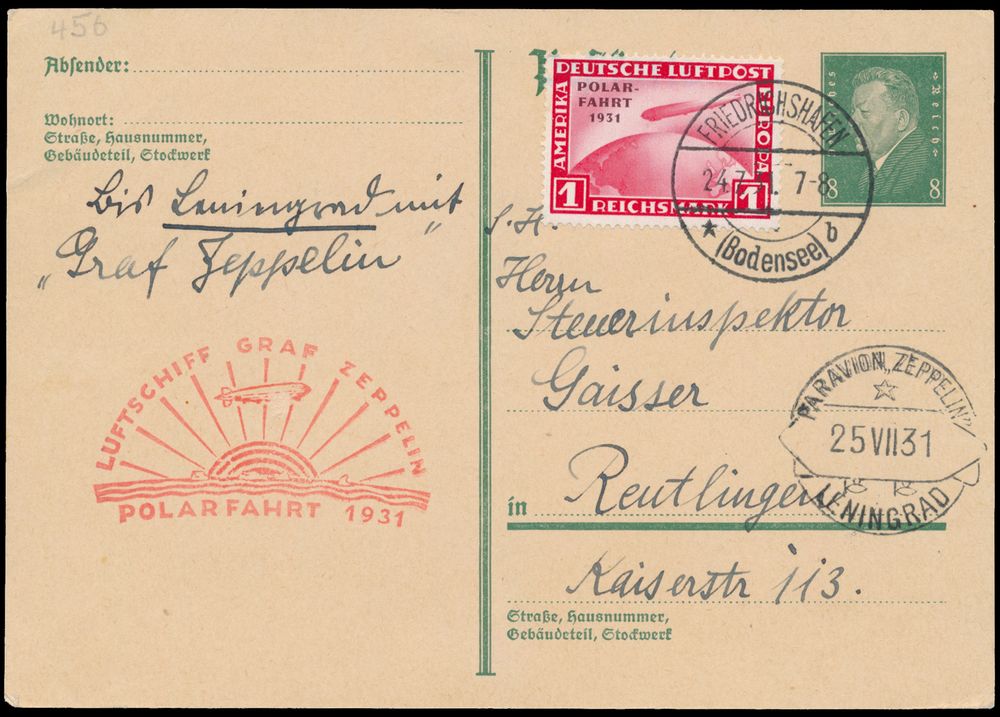 456
Absender:
Wohnort:
Straße, Hausnummer,
Gebäudeteil, Stockwerk
Bis Leningrad mit
„Graf Zeppelin“
LUFTSCHIFF GRAF ZEPPELIN
POLARFAHRT 1931
DEUTSCHE LUFTPOST
AMERIKA
EUROPA
POLAR-
FAHRT
1931
1 REICHSMARK 1
FRIEDRICHSHAFEN
24.7.31. 7-8
(Bodensee) b
Reich
8 8
S. H.
Herrn
Steuerinspektor
Gaisser
PARAVION „ZEPPELIN“
25 VII 31
LENINGRAD
in Reutlingen
Kaiserstr 113.
Straße, Hausnummer,
Gebäudeteil, Stockwerk